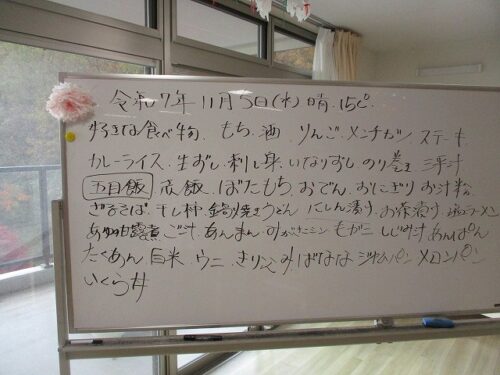 令和7年11月5日(水)晴.15℃.
好きな食べ物. もち.酒.りんご.メンチカツ.ステーキ
カレーライス.生ずし.刺し身.いなりずし のり巻き 三平汁
五目飯 赤飯.ぼたもち.おでん.おにぎり お汁粉
ざるそば.干し柿.鍋焼きうどん にしん漬け.お茶漬け.塩ラーメン
甘露煮 ごま汁.あんまん. しじみ汁.あんぱん
たくあん 白米.ウニ.きりこみ.ばなな ジャムパン メロンパン
いくら丼